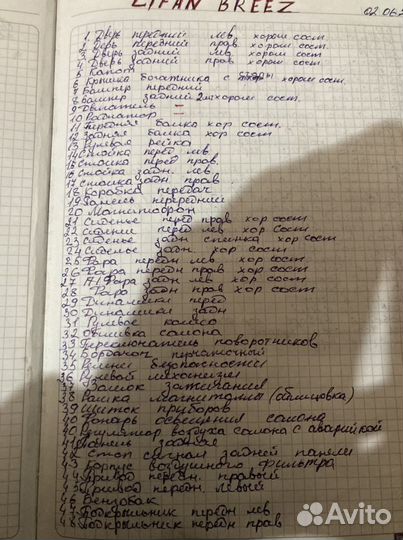 LIFAN BREEZ
02.06.2
1. Дверь передний лев. хорош сост.
2. Дверь передний прав. хорош сост.
3. Дверь задний лев. хорош сост.
4. Дверь задний прав. хорош сост.
5 Капот
6 Крышка богажника с хорош сост.
7 Бампер передний
8 Бампер задний 2шт хорош сост.
9 Двигатель —
10 Радиатор —
11 Передняя балка хор сост.
12 Задняя балка хор сост.
13 Рулевая рейка
14 Стойка перед лев
15 Стойка перед прав.
16 Стойка задн. лев
17 Стойка задн прав
18 Коробка передач
19 Панель передний
20 Магнитофон
21 Сиденье перед прав хор сост
22 Сиденье перед лев хор сост
23 Сиденье задн спинка хор сост
24 Сиденье задн. хор сост
25 Фара передн лев хор сост
26 Фара передн прав хор сост
27 Фара задн лев хор сост
28 Фара задн прав хор сост
29 Динамики перед
30 Динамики задн
31 Рулевое колесо
32 Обшивка салона
33 Переключатель поворотников
34 Бордачок
35 Ремни безопасности
36 Рулевой механизм
37 Замок зажигания
38 Рамка магнитолы (облицовка)
39 Щиток приборов
40 Фонарь освещения салона
40 воздуха салона с аварийкой
41 Панель задняя
42 Стоп сигнал задней панели
43 Корпус воздушного фильтра
44 Привод передн. правый
45 Привод передн. левый
46 Бензобак
47 Подкрыльник передн лев
48 Подкрыльник передн прав
Avito